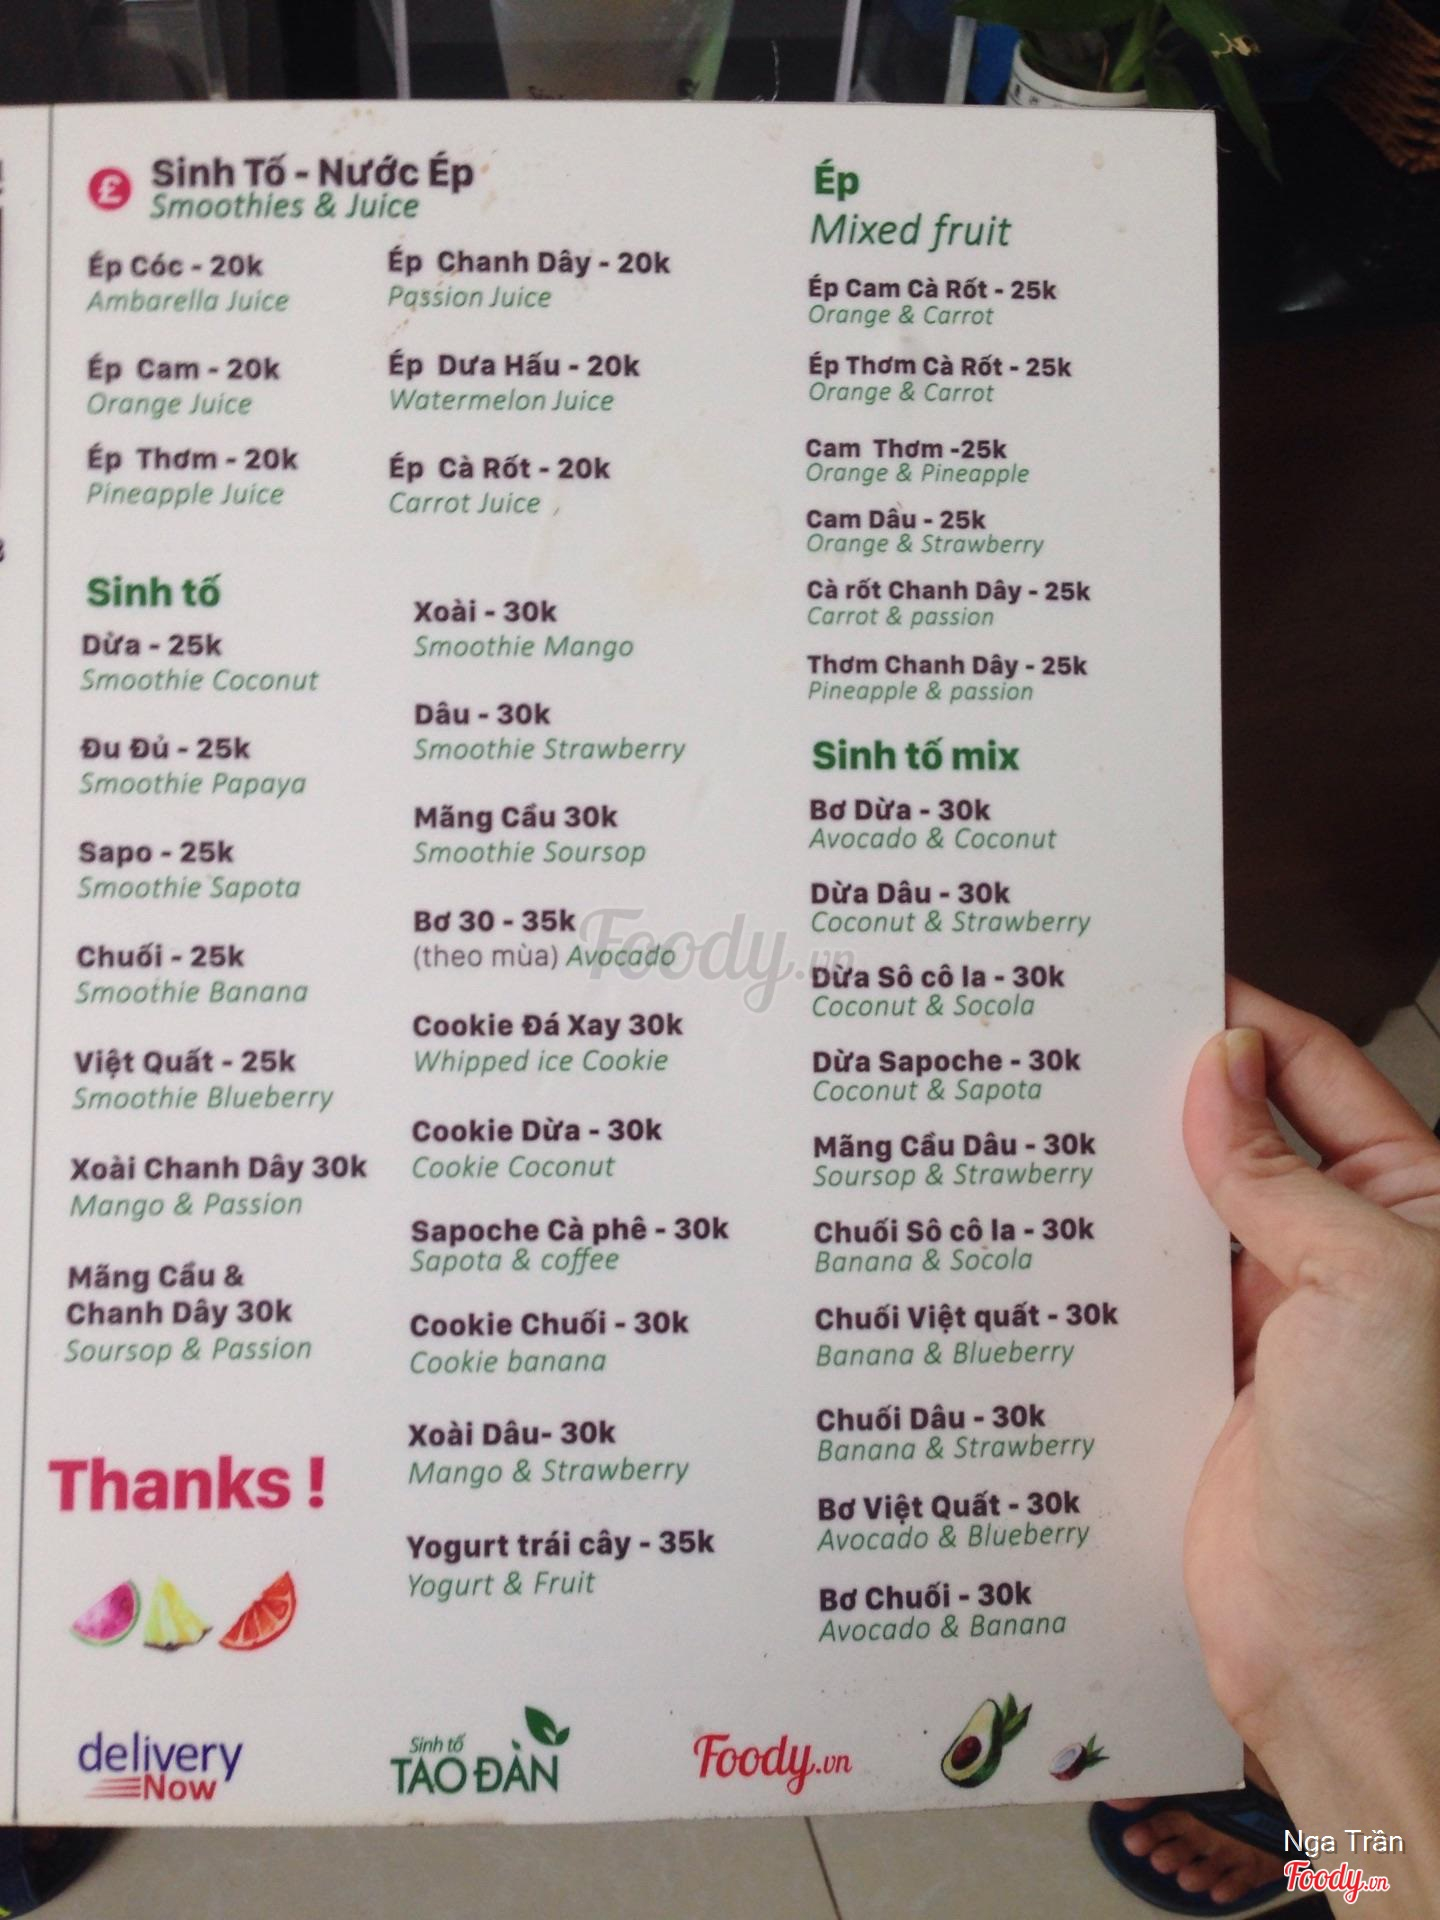 £
Sinh Tố - Nước Ép
Smoothies & Juice
Ép Cóc - 20k
Ambarella Juice
Ép Cam - 20k
Orange Juice
Ép Thơm - 20k
Pineapple Juice
Ép Chanh Dây - 20k
Passion Juice
Ép Dưa Hấu - 20k
Watermelon Juice
Ép Cà Rốt - 20k
Carrot Juice
Sinh tố
Dừa - 25k
Smoothie Coconut
Đu Đủ - 25k
Smoothie Papaya
Sapo - 25k
Smoothie Sapota
Chuối - 25k
Smoothie Banana
Việt Quất - 25k
Smoothie Blueberry
Xoài Chanh Dây 30k
Mango & Passion
Mãng Cầu &
Chanh Dây 30k
Soursop & Passion
Xoài - 30k
Smoothie Mango
Dâu - 30k
Smoothie Strawberry
Mãng Cầu 30k
Smoothie Soursop
Bơ 30 - 35k
(theo mùa) Avocado
Cookie Đá Xay 30k
Whipped ice Cookie
Cookie Dừa - 30k
Cookie Coconut
Sapoche Cà phê - 30k
Sapota & coffee
Cookie Chuối - 30k
Cookie banana
Xoài Dâu- 30k
Mango & Strawberry
Yogurt trái cây - 35k
Yogurt & Fruit
Ép
Mixed fruit
Ép Cam Cà Rốt - 25k
Orange & Carrot
Ép Thơm Cà Rốt - 25k
Orange & Carrot
Cam Thơm -25k
Orange & Pineapple
Cam Dâu - 25k
Orange & Strawberry
Cà rốt Chanh Dây - 25k
Carrot & passion
Thơm Chanh Dây - 25k
Pineapple & passion
Sinh tố mix
Bơ Dừa - 30k
Avocado & Coconut
Dừa Dâu - 30k
Coconut & Strawberry
Dừa Sô cô la - 30k
Coconut & Socola
Dừa Sapoche - 30k
Coconut & Sapota
Mãng Cầu Dâu - 30k
Soursop & Strawberry
Chuối Sô cô la - 30k
Banana & Socola
Chuối Việt quất - 30k
Banana & Blueberry
Chuối Dâu - 30k
Banana & Strawberry
Bơ Việt Quất - 30k
Avocado & Blueberry
Bơ Chuối - 30k
Avocado & Banana
Thanks !
delivery
Now
Sinh tố
TAO ĐÀN
Foody.vn
Foody.vn
Nga Trần
Foody.vn